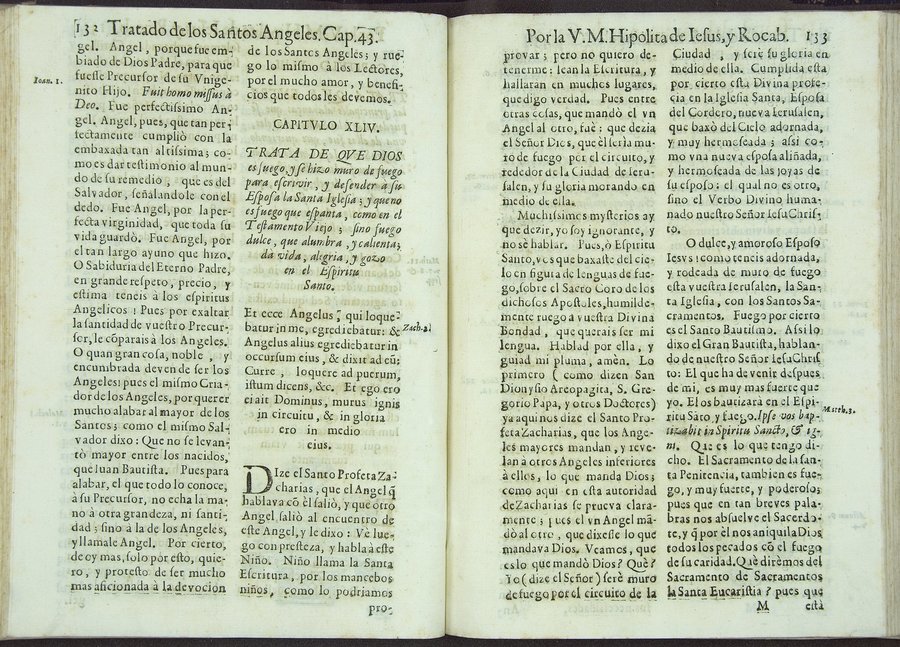 132 Tratado de los Santos Angeles. Cap. 43.
gel. Angel, porque fue em-
biado de Dios Padre, para que
fuesse Precursor de su Vnige-
Ioan. 1.
nito Hijo. Fuit homo missus à
Deo. Fue perfectissimo An-
gel. Angel, pues, que tan per-
fectamente cumpliò con la
embaxada tan altissima; co-
mo es dar testimonio al mun-
do de su remedio, que es del
Salvador, señalandole con el
dedo. Fue Angel, por la per-
fecta virginidad, que toda su
vida guardò. Fue Angel, por
el tan largo ayuno que hizo.
O Sabiduria del Eterno Padre,
en grande respeto, precio, y
estima teneis à los espiritus
Angelicos! Pues por exaltar
la santidad de vuestro Precur-
sor, le cõparais à los Angeles.
O quan gran cosa, noble, y
encumbrada deven de ser los
Angeles! pues el mismo Cria-
dor de los Angeles, por querer
mucho alabar al mayor de los
Santos; como el mismo Sal-
vador dixo: Que no se levan-
tò mayor entre los nacidos,
que Iuan Bautista. Pues para
alabar, el que todo lo conoce,
à su Precursor, no echa la ma-
no à otra grandeza, ni santi-
dad; sino à la de los Angeles,
y llamale Angel. Por cierto,
de oy mas, solo por esto, quie-
ro, y protesto de ser mucho
mas aficionada à la devocion
de los Santos Angeles; y rue-
go lo mismo à los Lectores,
por el mucho amor, y benefi-
cios que todos les devemos.
CAPITVLO XLIV.
TRATA DE QVE DIOS
es fuego, y se hizo muro de fuego
para escrivir, y defender à su
Esposa la Santa Iglesia; y que no
es fuego que espanta, como en el
Testamento Viejo; sino fuego
dulce, que alumbra, y calienta;
da vida, alegria, y gozo
en el Espiritu
Santo.
Et ecce Angelus, qui loque
batur in me, egrediebatur: &
Zach. 2.
Angelus alius egrediebatur in
occursum eius, & dixit ad eũ:
Curre, loquere ad puerum,
istum dicens, &c. Et ego ero
ei ait Dominus, murus ignis
in circuitu, & in gloria
ero in medio
eius.
DIze el Santo Profeta Za-
charias, que el Angel q̃
hablava cõ èl saliò, y que otro
Angel saliò al encuentro de
este Angel, y le dixo: Vè lue-
go con presteza, y habla à este
Niño. Niño llama la Santa
Escritura, por los mancebos
niños, como lo podriamos
pro-
Por la V. M. Hipolita de Iesus, y Rocab. 133
provar; pero no quiero de-
tenerme: lean la Escritura, y
hallaran en muchos lugares,
que digo verdad. Pues entre
otras cosas, que mandò el vn
Angel al otro, fuè: que dezia
el Señor Dios, que èl seria mu-
ro de fuego por el circuito, y
rededor de la Ciudad de Ieru-
salen, y su gloria morando en
medio de ella.
Muchissimos mysterios ay
que dezir, yo soy ignorante, y
no sè hablar. Pues, ò Espiritu
Santo, vos que baxaste del cie-
lo en figura de lenguas de fue-
go, sobre el Sacro Coro de los
dichosos Apostoles, humilde-
mente ruego a vuestra Divina
Bondad, que querais ser mi
lengua. Hablad por ella, y
guiad mi pluma, amèn. Lo
primero (como dizen San
Dionysio Areopagita, S. Gre-
gorio Papa, y otros Doctores)
ya aqui nos dize el Santo Pro-
feta Zacharias, que los Ange-
les mayores mandan, y reve-
lan à otros Angeles inferiores
à ellos, lo que manda Dios;
como aqui en esta autoridad
de Zacharias se prueva clara-
mente; pues el vn Angel mã-
dò al otro, que dixesse lo que
mandava Dios. Veamos, que
es lo que mandò Dios? Què?
Yo (dize el Señor) serè muro
de fuego por el circuito de la
Ciudad, y serè su gloria en
medio de ella. Cumplida està
por cierto esta Divina profe-
cia en la Iglesia Santa, Esposa
del Cordero, nueva Ierusalen,
que baxò del Cielo adornada,
y muy hermoseada; assi co-
mo vna nueva esposa aliñada,
y hermoseada de las joyas de
su esposo: el qual no es otro,
sino el Verbo Divino huma-
nado nuestro Señor Iesu Chris-
to.
O dulce, y amoroso Esposo
Iesvs! como teneis adornada,
y rodeada de muro de fuego
esta vuestra Ierusalen, la San-
ta Iglesia, con los Santos Sa-
cramentos. Fuego por cierto
es el Santo Bautismo. Assi lo
dixo el Gran Bautista, hablan-
do de nuestro Señor Iesu Chris-
to: El que ha de venir despues
de mi, es muy mas fuerte que
yo. El os bautizarà en el Espi-
ritu Sãto y fuego. Ipse vos bap-
Matth. 3.
tizabit in Spiritu Sancto, & ig-
ni. Que es lo que tengo di-
cho. El Sacramento de la san-
ta Penitencia, tambien es fue-
go, y muy fuerte, y poderoso;
pues que en tan breves pala-
bras nos absuelve el Sacerdo-
te, y q̃ por èl nos aniquila Dios
todos los pecados cõ el fuego
de su caridad. Què dirèmos del
Sacramento de Sacramentos
la Santa Eucaristia? pues que
M està